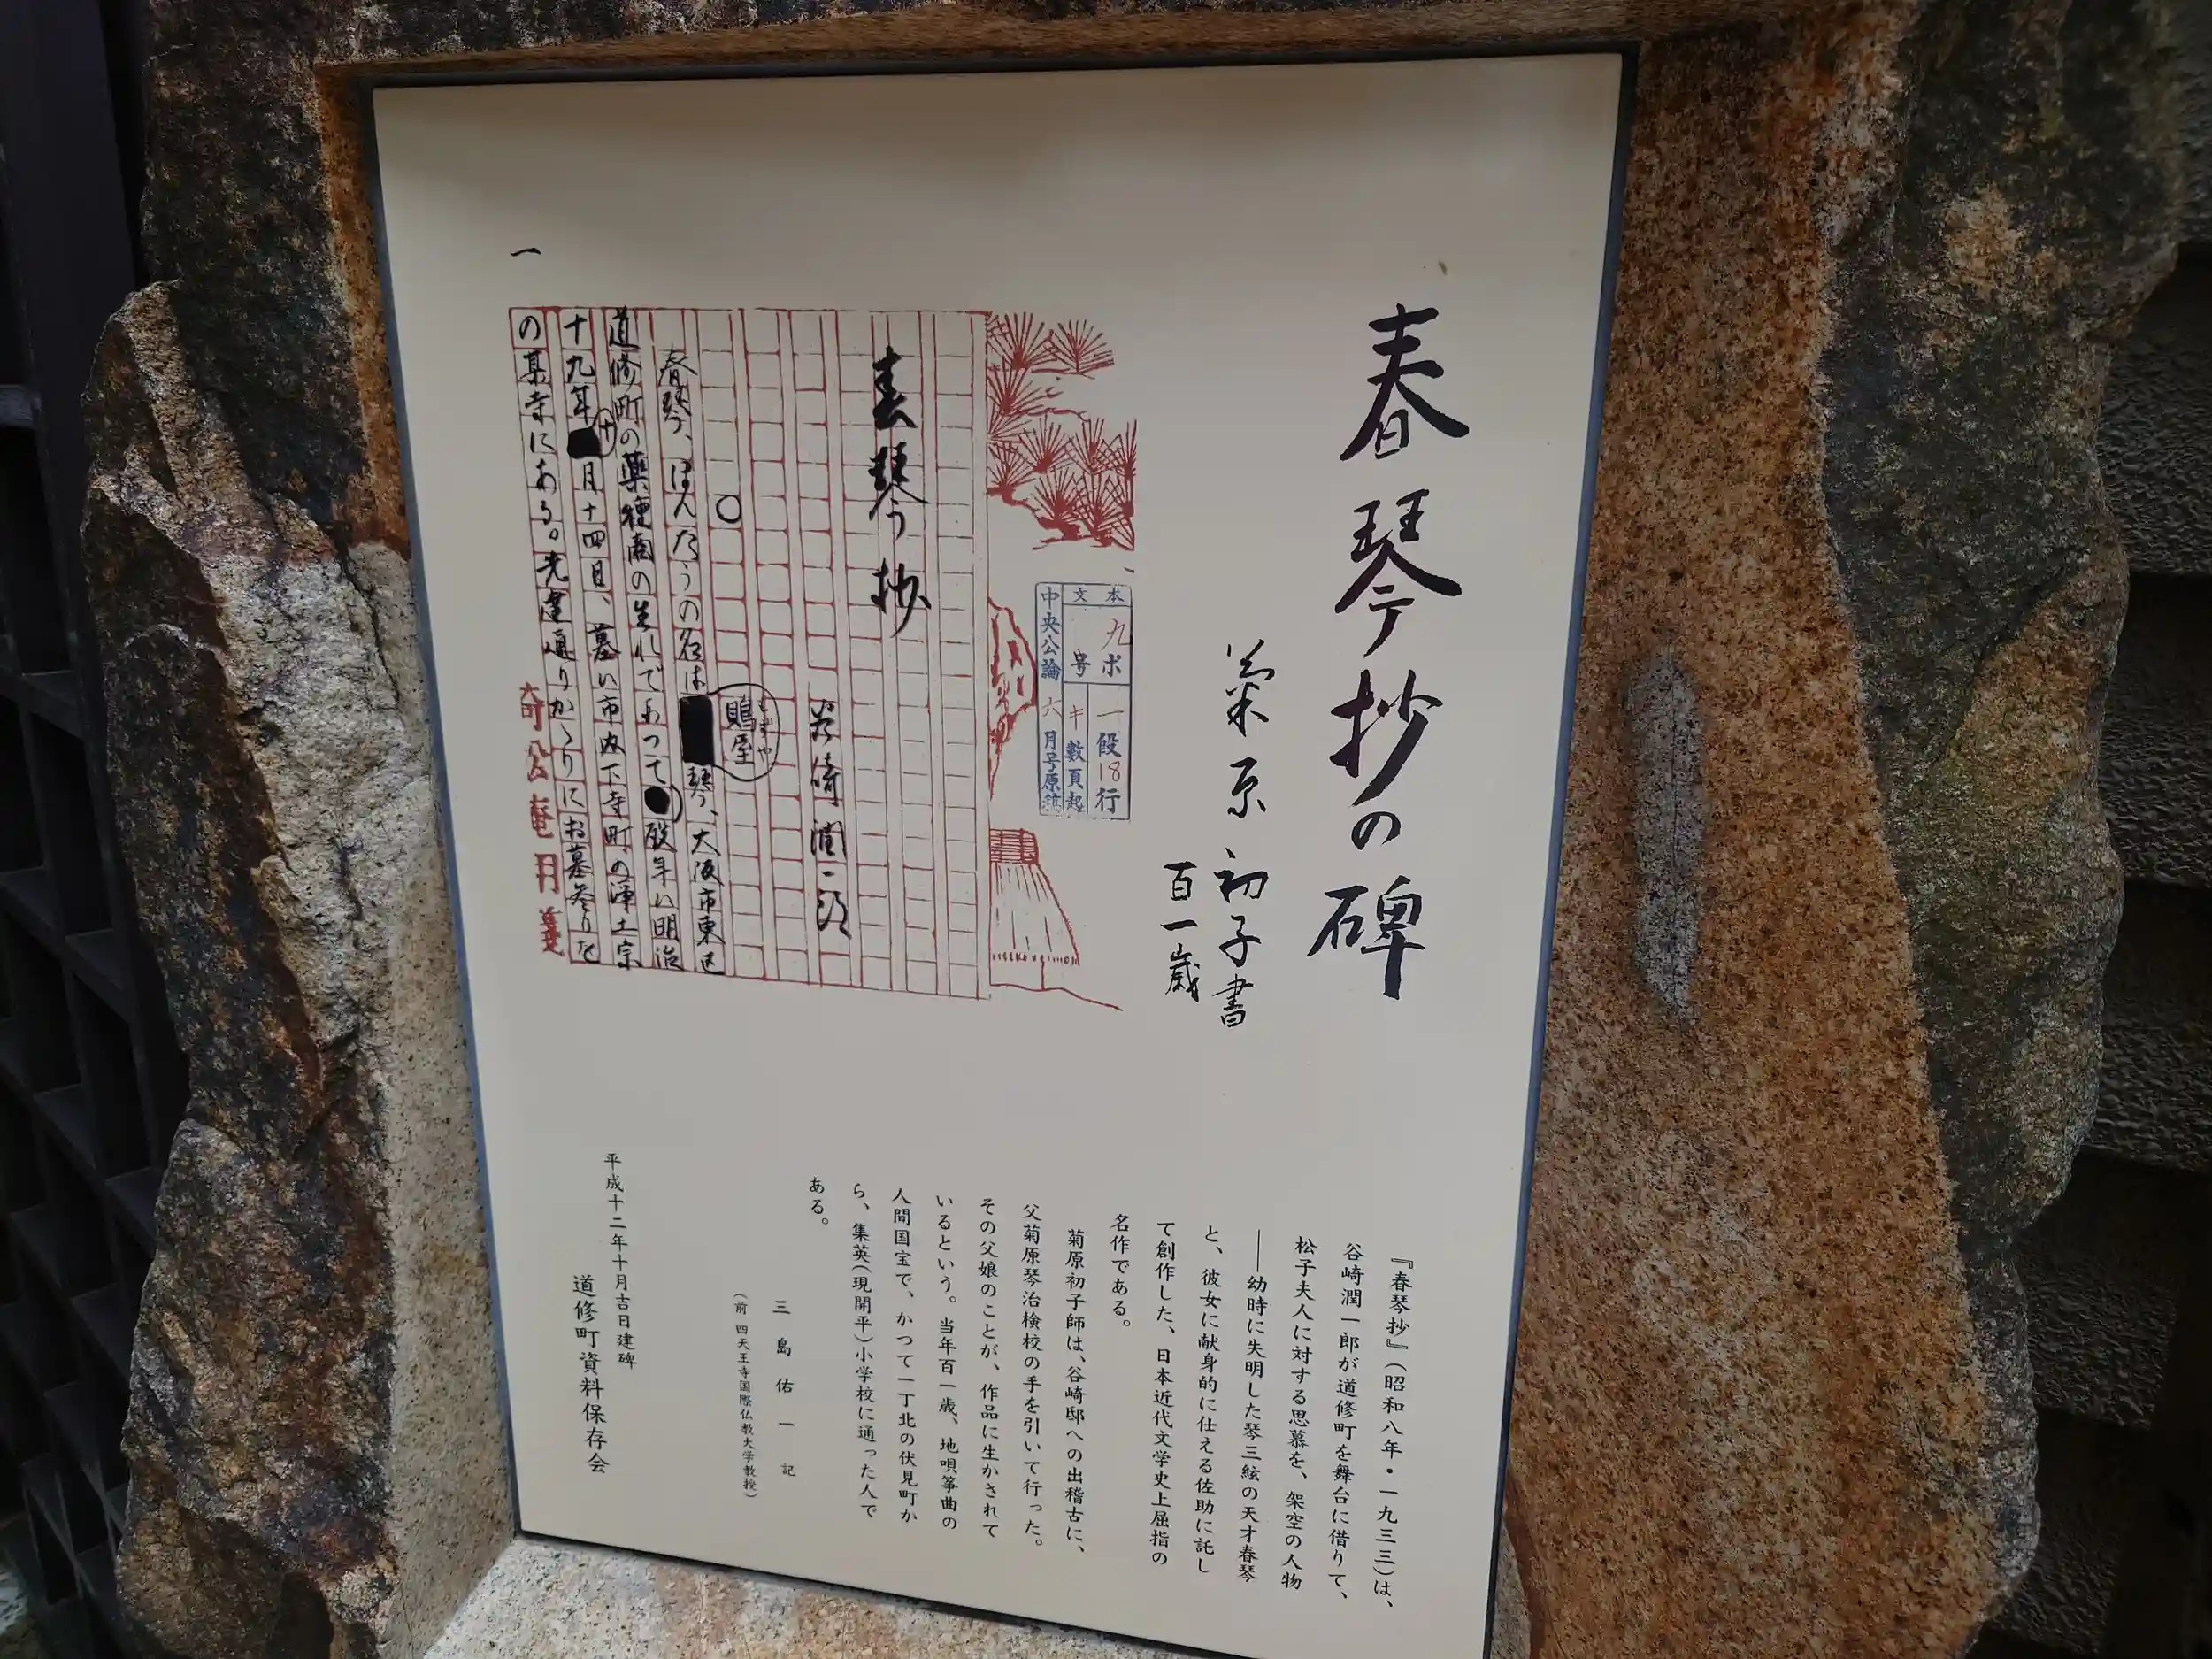 春琴抄の碑
菊原初子書
百一歳
本文
九ポ一段18行
号
キ数頁起
中央公論六月号原稿
春琴抄
谷崎潤一郎
○
鵙屋
もずや
春琴、ほんたうの名は琴、大阪市東区
道修町の薬種商の生れであつて歿年は明治
十九年十月十四日、墓は市内下寺町の浄土宗
の某寺にある。先達通りかゝりにお墓参りを
一
『春琴抄』(昭和八年・一九三三)は、
谷崎潤一郎が道修町を舞台に借りて、
松子夫人に対する思慕を、架空の人物
――幼時に失明した琴三絃の天才春琴
と、彼女に献身的に仕える佐助に託し
て創作した、日本近代文学史上屈指の
名作である。
菊原初子師は、谷崎邸への出稽古に、
父菊原琴治検校の手を引いて行った。
その父娘のことが、作品に生かされて
いるという。当年百一歳、地唄箏曲の
人間国宝で、かつて一丁北の伏見町か
ら、集英(現開平)小学校に通った人で
ある。
三島佑一 記
(前 四天王寺国際仏教大学教授)
平成十二年十月吉日建碑
道修町資料保存会